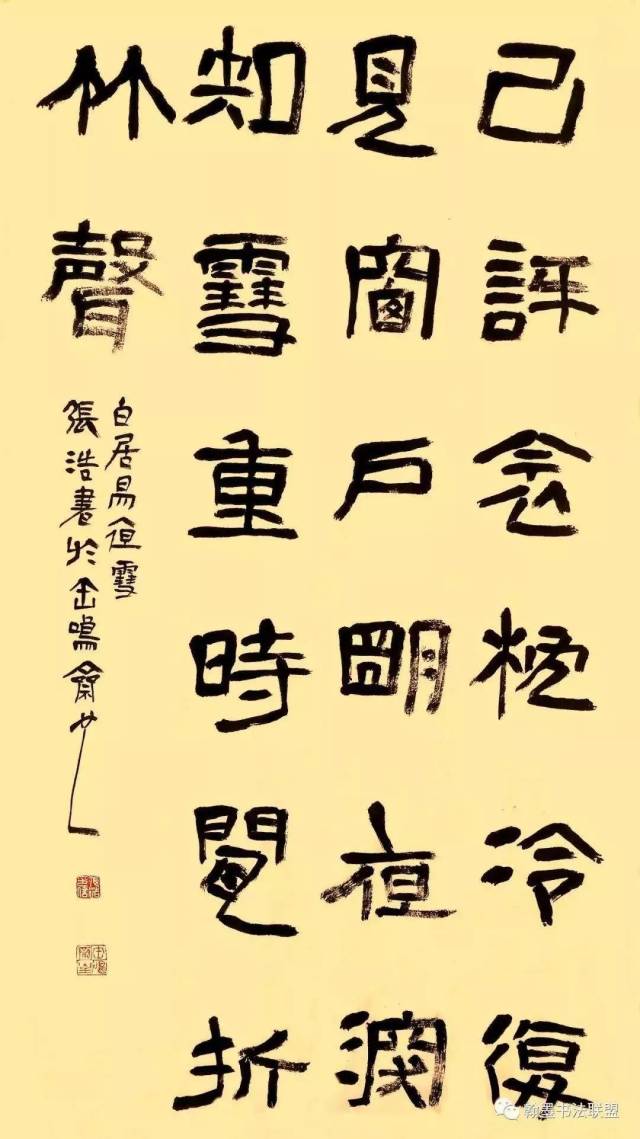 已訝衾枕冷復
見窗戶明夜深
知雪重時聞折
竹聲
白居易夜雪
張浩書於鳴齋
翰墨书法联盟